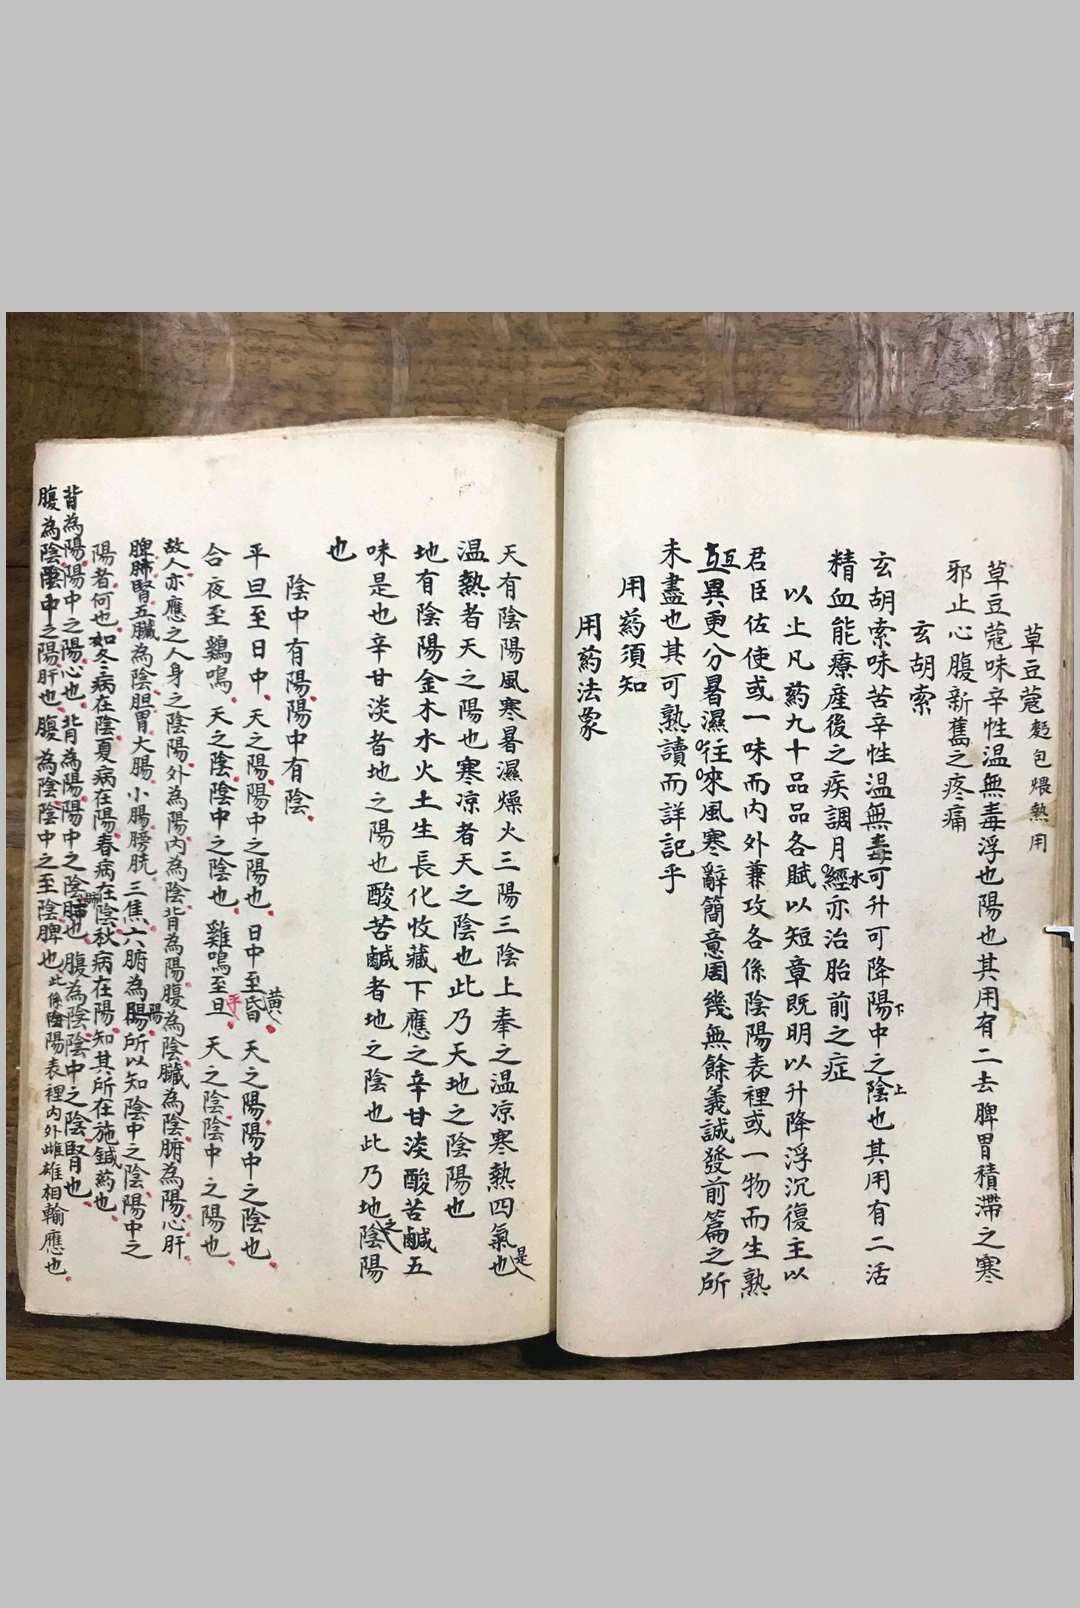 草豆蔻 麪包煨熱用
草豆蔻味辛性温無毒浮也陽也其用有二去脾胃積滯之寒
邪止心腹新舊之疼痛
玄胡索
玄胡索味苦辛性温無毒可升可降陽中之陰也其用有二活
下上
精血能療産後之疾調月經水亦治胎前之症
以上凡葯九十品品各賦以短章既明以升降浮沉復主以
君臣佐使或一味而内外兼攻各係陰陽表裡或一物而生熟
互異更分暑濕往來風寒辭簡意周幾無餘義誠發前篇之所
未盡也其可熟讀而詳記乎
用葯須知
用葯法象
天有陰陽風寒暑濕燥火三陽三陰上奉之温凉寒熱四氣是也
温熱者天之陽也寒凉者天之陰也此乃天地之陰陽也
地有陰陽金木水火土生長化收藏下應之辛甘淡酸苦鹹五
味是也辛甘淡者地之陽也酸苦鹹者地之陰也此乃地之陰陽
也
陰中有陽陽中有陰
平旦至日中 天之陽陽中之陽也 日中至黄昏 天之陽陽中之陰也
合夜至鷄鳴 天之陰陰中之陰也 雞鳴至平旦 天之陰陰中之陽也
故人亦應之人身之陰陽外為陽内為陰背為陽腹為陰臟為陰腑為陽心肝
脾肺腎五臟為陰胆胃大腸小腸膀胱三焦六腑為陽所以知陰中之陰陽中之
陽者何也如冬病在陰夏病在陽春病在陰秋病在陽知其所在施鍼葯也
背為陽陽中之陽心也背為陽陽中之陰肺也腹為陰陰中之陰腎也
腹為陰陰中之陽肝也腹為陰陰中之至陰脾也此係陰陽表裡内外雌雄相輸應也